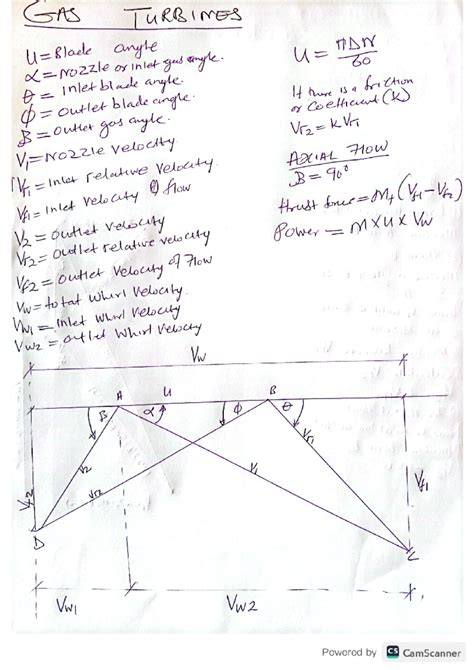 GAS TURBINES
U = Blade angle
α = Nozzle or inlet gas angle.
θ = inlet blade angle.
Φ = outlet blade angle.
B = outlet gas angle.
V1 = Nozzle Velocity
Vr1 = Inlet relative Velocity.
Vf1 = Inlet Velocity of flow
V2 = outlet velocity
Vr2 = outlet relative velocity
Vf2 = outlet Velocity of Flow
Vw = total Whirl Velocity.
Vw1 = Inlet Whirl Velocity
Vw2 = outlet Whirl Velocity
U = ΠDN
60
If there is a friction
or Coefficient (K)
Vr2 = KVr1
AXIAL FLOW
B = 90°
thrust force = Mf (Vf1 - Vf2)
Power = M x U x Vw
Vw
A U B
B α Φ θ
V2 Vr2 V1 Vr1
Vf2 Vf1
D C
Vw1 Vw2
Powered by CS CamScanner